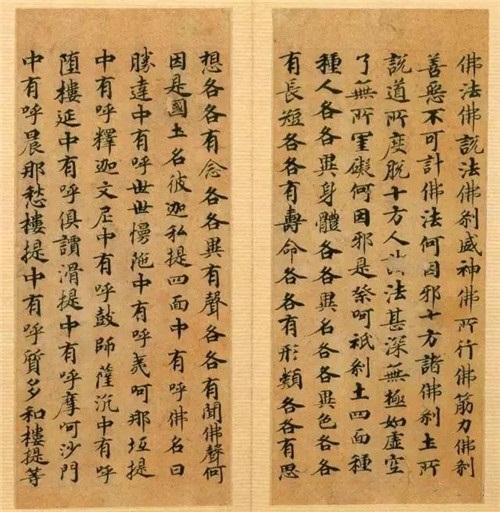 佛法佛說法佛剎威神佛所行佛筋力佛剎
善惡不可計佛法何因邪十方諸佛剎土所
說道所度脫十方人出法甚深無極如虛空
了無所罣礙何因邪是祭呵祇剎土四面種
種人各各異身體各各異名各各異色各各
有長短各各有壽命各各有形類各各有思
想各各有念各各異有聲各各有聞佛聲何
因是國土名彼迦私提四面中有呼佛名曰
勝達中有呼世世慢陁中有呼義呵那坘提
中有呼釋迦文尼中有呼鼓師薩沉中有呼
墮樓延中有呼俱讀滑提中有呼摩呵沙門
中有呼晨那愁樓提中有呼質多和樓提等